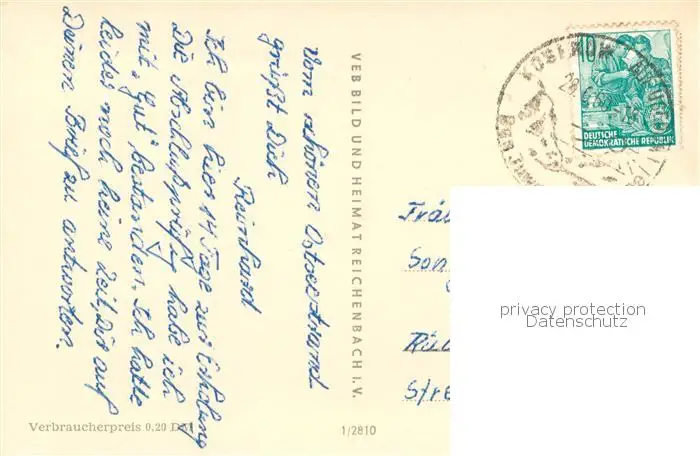 Vom schönen Ostseestrand
grüßt Dich
Reinhard
Ich bin hier 14 Tage zur Erholung
Die Abschlußprüfung habe ich
mit „Gut" bestanden. Ich hatte
leider noch keine Zeit, Dir auf
Deinen Brief zu antworten.
VEB BILD UND HEIMAT REICHENBACH I. V.
Verbraucherpreis 0,20 DM
1/2810
KOSEROW
10
DEUTSCHE
DEMOKRATISCHE REPUBLIK
Frä
Son
Str
privacy protection
Datenschutz